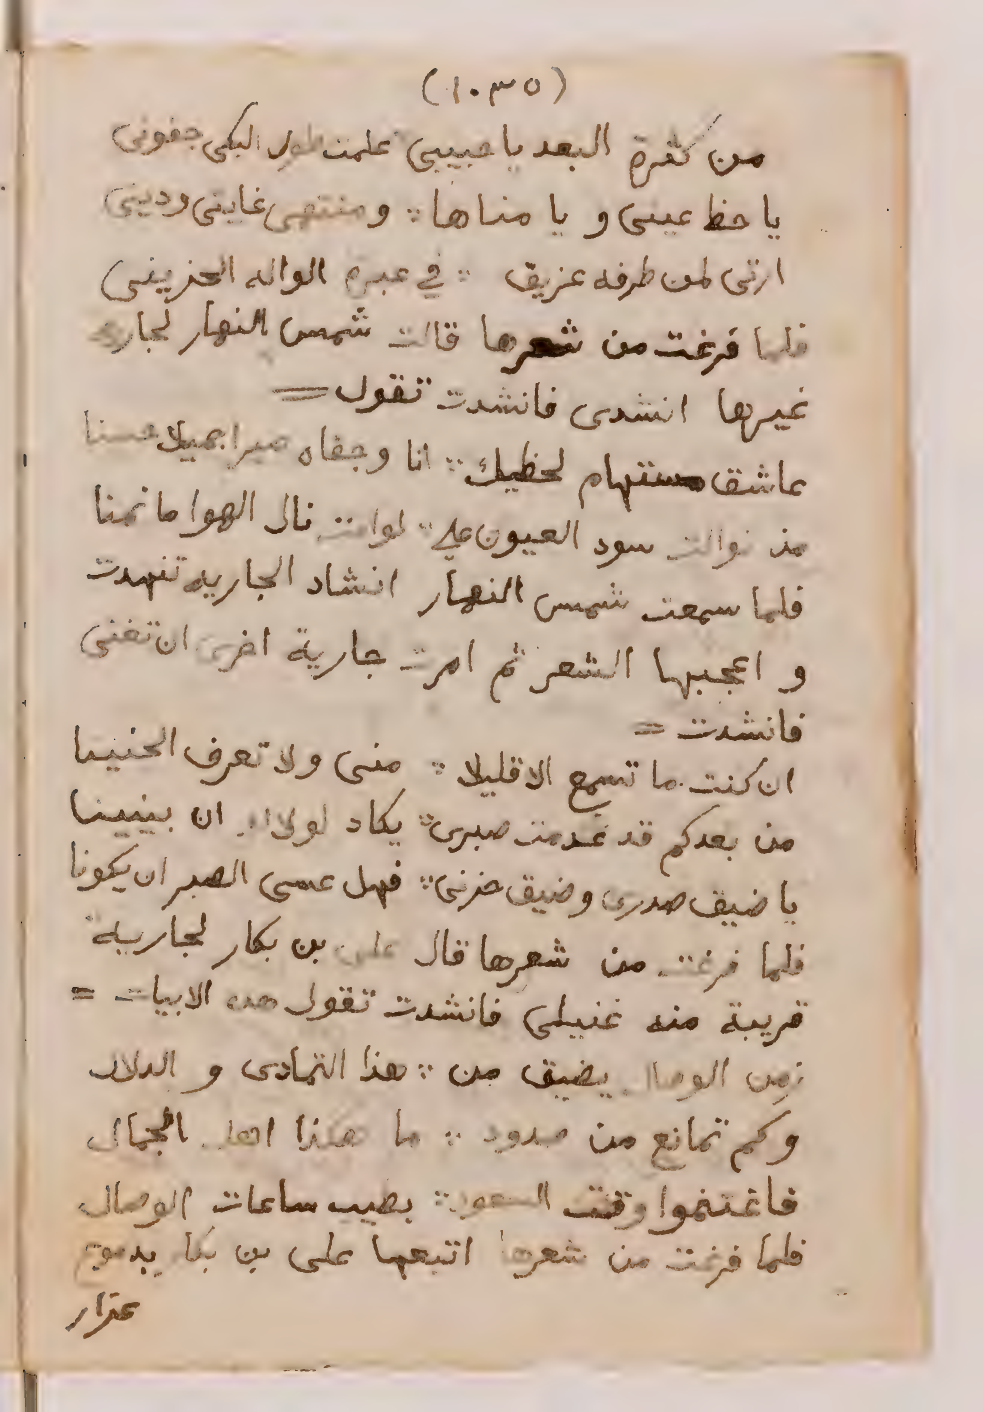 (١٠٣٥)
من كثرة البعد يا حبيبى علمت طول البكى جفونى
يا حظ عينى و يا مناها ∴ و منتهى غايتى ودينى
ارثى لمن طرفه غريق ∴ في عبرة الواله الحزينى
فلما فرغت من شعرها قالت شمس النهار لجارية
غيرها انشدى فانشدت تقول =
عاشق مستهام لحظيك ∴ انا وجفاه صبرا جميلا حسنا
مذ توالت سود العيون علي ∴ نال الهوا ما نمنا
فلما سمعت شمس النهار انشاد الجاريه تنهدت
و اعجبها الشعر ثم امرت جارية اخرى ان تغنى
فانشدت =
ان كنت ما تسمع الا قليلا ∴ منى ولا تعرف الحنينا
من بعدكم قد عدمت صبرى ∴ يكاد لولا ان يبينا
يا ضيق صدرى وضيق حزنى ∴ فهل عسى الصبر ان يكونا
فلما فرغت من شعرها قال على بن بكار لجارية
قريبة منه غنيلى فانشدت تقول هذه الابيات =
زمن الوصال يضيق من ∴ هذا التمادى و الدلال
وكم تمانع من صدود ∴ ما هكذا اهل الجمال
فاغتنموا وقت السعود ∴ بطيب ساعات الوصال
فلما فرغت من شعرها اتبعها على بن بكار بدموع
غزار